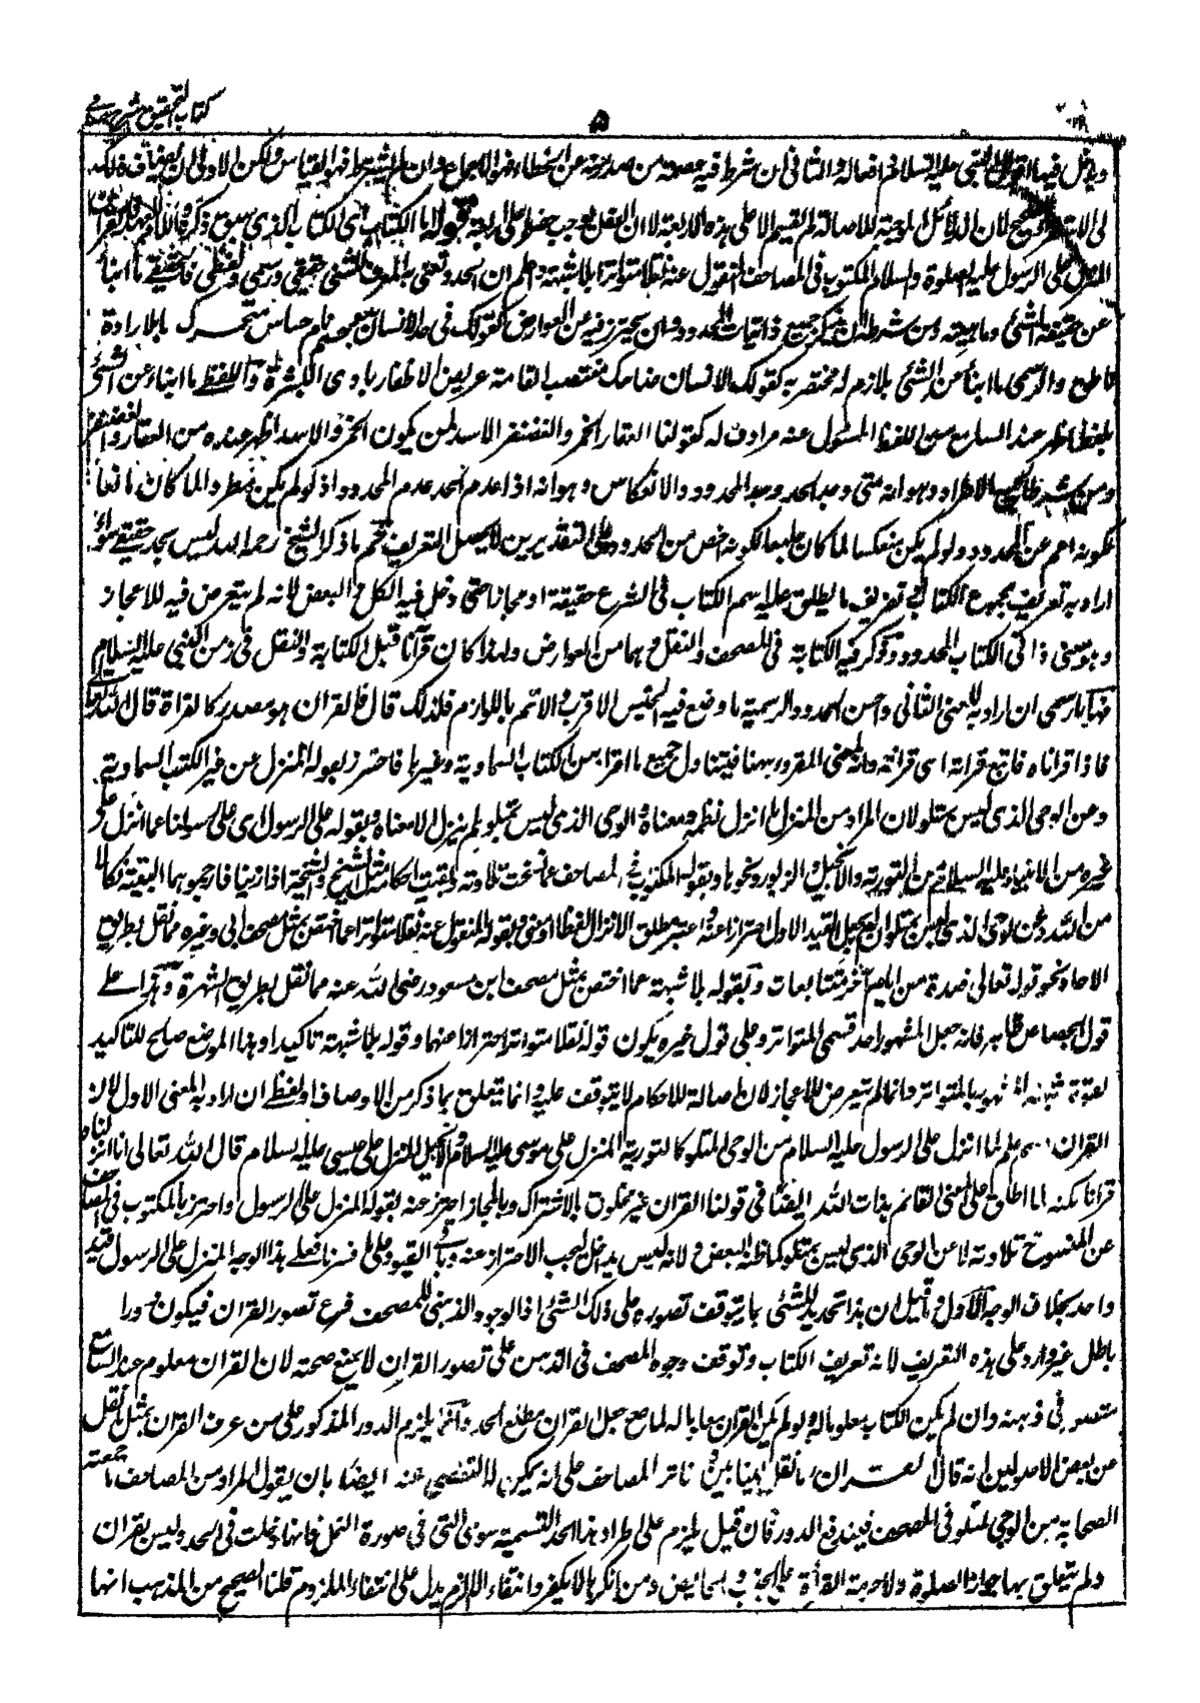 كتاب التحقيق شرح حسامي
٥
ويدخل فيها قول النبي عليه السلام وافعاله والثاني ان شرط فيه عصمة من صدر عنه عن الخطاء فهو الاجماع وان لم يشترط فهو القياس ولكن الاولى ان يضاف ذلك
الى الاستقراء الصحيح لان الدلائل الموجبة للاصالة لم تقسم الا على هذه الاربعة لا ان العقل يوجب حصرها على اربعة قوله اما الكتاب اي الكتاب الذي سبق ذكره واللام للعهد فالقران
المنزل على الرسول عليه الصلوة والسلام المكتوب في المصاحف المنقول عنه نقلا متواترا بلا شبهة واعلم ان الحد ونعني به المعرف للشئ حقيقي ورسمي ولفظي فالحقيقي ما انبأ
عن حقيقة الشئ وماهيته ومن شرطه ان يذكر جميع ذاتيات المحدود وان يحترز فيه عن العوارض كقولك في حد الانسان جسم نام حساس متحرك بالارادة
ناطق والرسمي ما انبأ عن الشئ بلازم له مختص به كقولك الانسان ضاحك منتصب القامة عريض الاظفار بادي البشرة واللفظي ما انباء عن الشئ
بلفظ اظهر عند السامع من اللفظ المسئول عنه مرادف له كقولنا العقار الخمر والغضنفر الاسد لمن يكون الخمر والاسد اظهر عنده من العقار والغضنفر
ومن شرط الجميع الاطراد وهو انه متى وجد الحد وجد المحدود والانعكاس وهو انه اذا عدم الحد عدم المحدود اذ لو لم يكن مطردا لما كان مانعا
لكونه اعم من المحدود ولو لم يكن منعكسا لما كان جامعا لكونه اخص من المحدود وعلى التقديرين لا يحصل التعريف ثم ما ذكر الشيخ رحمه الله ليس بحد حقيقي سواء
اراد به تعريف مجموع الكتاب او تعريف ما يطلق عليه اسم الكتاب في الشرع حقيقة او مجازا حتى دخل فيه الكل والبعض لانه لم يتعرض فيه للاعجاز
وهو معنى ذاتي لكتاب المحدود وذكر فيه الكتابة في المصحف والنقل وهما من العوارض ولهذا كان قرآنا قبل الكتابة والنقل في زمن النبي عليه السلام
فهو رسمي ان اراد به المعنى الثاني واحسن الحدود الرسمية ما وضع فيه الجنس الاقرب والاتم باللوازم فلذلك قال فالقران هو مصدر كالقراة قال الله تعالى
فاذا قراناه فاتبع قرانه اى قراته وانه بمعنى المقرو بهنا فيتناول جميع ما اقرا من الكتاب السماوية وغيرها فاحترز بقوله المنزل عن غير الكتب السماوية
ومن الوحي الذي ليس بمتلو لان المراد من المنزل ما انزل نظمه ومعناه والوحي الذي ليس بمتلو لم ينزل الا معناه وبقوله على الرسول اى على رسولنا عما انزل على
غيره من الانبياء عليهم السلام من التورية والانجيل والزبور ونحوها وبقوله المكتوب في المصاحف عما نسخت تلاوته وبقيت احكامه مثل الشيخ والشيخة اذا زنيا فارجموهما البتة نكالا
من الله وعن الوحى الذي ليس بمتلو ان لم يجعل القيد الاول احترازا عنه واعتبر مطلق الانزال لفظا او معنى وبقوله المنقول عنه نقلا متواترا عما اختص بمثل مصحف ابي وغيره مما نقل بطريق
الاحاد نحو قوله تعالى فعدة من ايام اخر متتابعات وبقوله بلا شبهة عما اختص بمثل مصحف ابن مسعود رضي الله عنه مما نقل بطريق الشهرة وهذا على
قول الجصاص ظاهر فانه جعل المشهور احد قسمي المتواتر وعلى قول غيره يكون قوله نقلا متواترا احترازا عنهما وقوله بلا شبهة تاكيدا وهذا الموضع صالح للتاكيد
لقوة شبه المشهور بالمتواتر وانما لم يتعرض للاعجاز لان اصالة للاحكام لا يتوقف عليه وانما يتعلق بما ذكر من الاوصاف او لفظي ان اراد به المعنى الاول لان
القران اسم علم لما انزل على الرسول عليه السلام من الوحي المتلو كالتورية المنزل على موسى عليه السلام والانجيل المنزل على عيسى عليه السلام قال الله تعالى انا انزلناه
قرانا لكنه لما اطلق على المعنى القائم بذات الله ايضا في قولنا القران غير مخلوق بالاشتراك وبالمجاز احترز عنه بقوله المنزل على الرسول واحترز بالمكتوب في المصاحف
عن المنسوخ تلاوته لا عن الوحي الذي ليس بمتلو كما ظنه البعض لانه ليس بداخل ليجب الاحتراز عنه وباقي القيود على ما فسرنا فعلى هذا الوجه المنزل على الرسول قيد
واحد بخلاف الوجه الاول وما قيل ان هذا تحديد للشئ بما يتوقف تصوره على ذلك الشئ اذ الوجود الذهني للمصحف فرع تصور القران فيكون دورا
باطل غير وارد على هذه التعريف لانه تعريف الكتاب وتوقف وجود المصحف في الذهن على تصور القران لا يمنع صحته لان القران معلوم عند السامع
متصور في ذهنه وان لم يكن الكتاب معلوما له ولو لم يكن القران معلوما له لما صح جعل القران مطلع الحد وانما يلزم الدور المذكور على من عرف القران بمثل ما نقل
عن بعض الاصوليين انه قال القران ما نقل الينا بين دفتي المصاحف على انه يمكن له التفصي عنه ايضا بان يقول المراد من المصاحف ما جمعته
الصحابة من الوحي المتلو في المصحف فيندفع الدور فان قيل يلزم على اطراد هذا الحد التسمية سوى التي في صورة النمل فانها دخلت في الحد وليس بقران
ولم يتعلق بها جواز الصلوة ولا حرمة القرأة على الجنب والحائض ومن انكرها لا يكفر وانتفاء اللازم يدل على انتفاء الملزوم قلنا الصحيح من المذهب انها